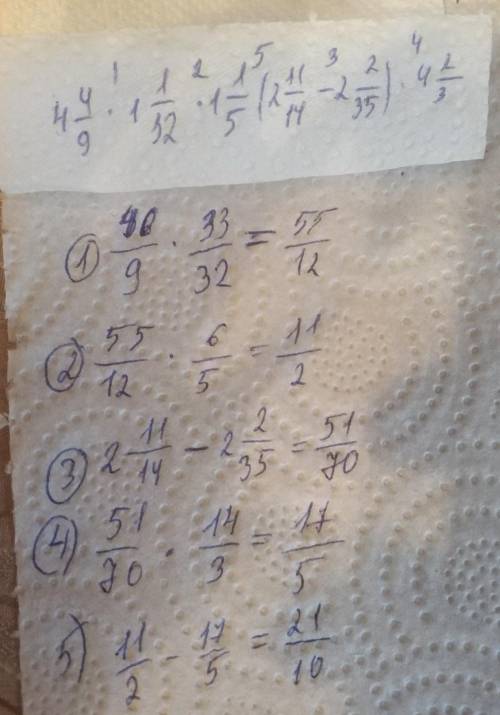 4 4/9 · 1 1/32 · 1 1/5 (2 11/14 - 2 2/35) · 4 2/3
1 2 5 3 4
① 40/9 · 33/32 = 55/12
② 55/12 · 6/5 = 11/2
③ 2 11/14 - 2 2/35 = 51/70
④ 51/70 · 14/3 = 17/5
5) 11/2 - 17/5 = 21/10